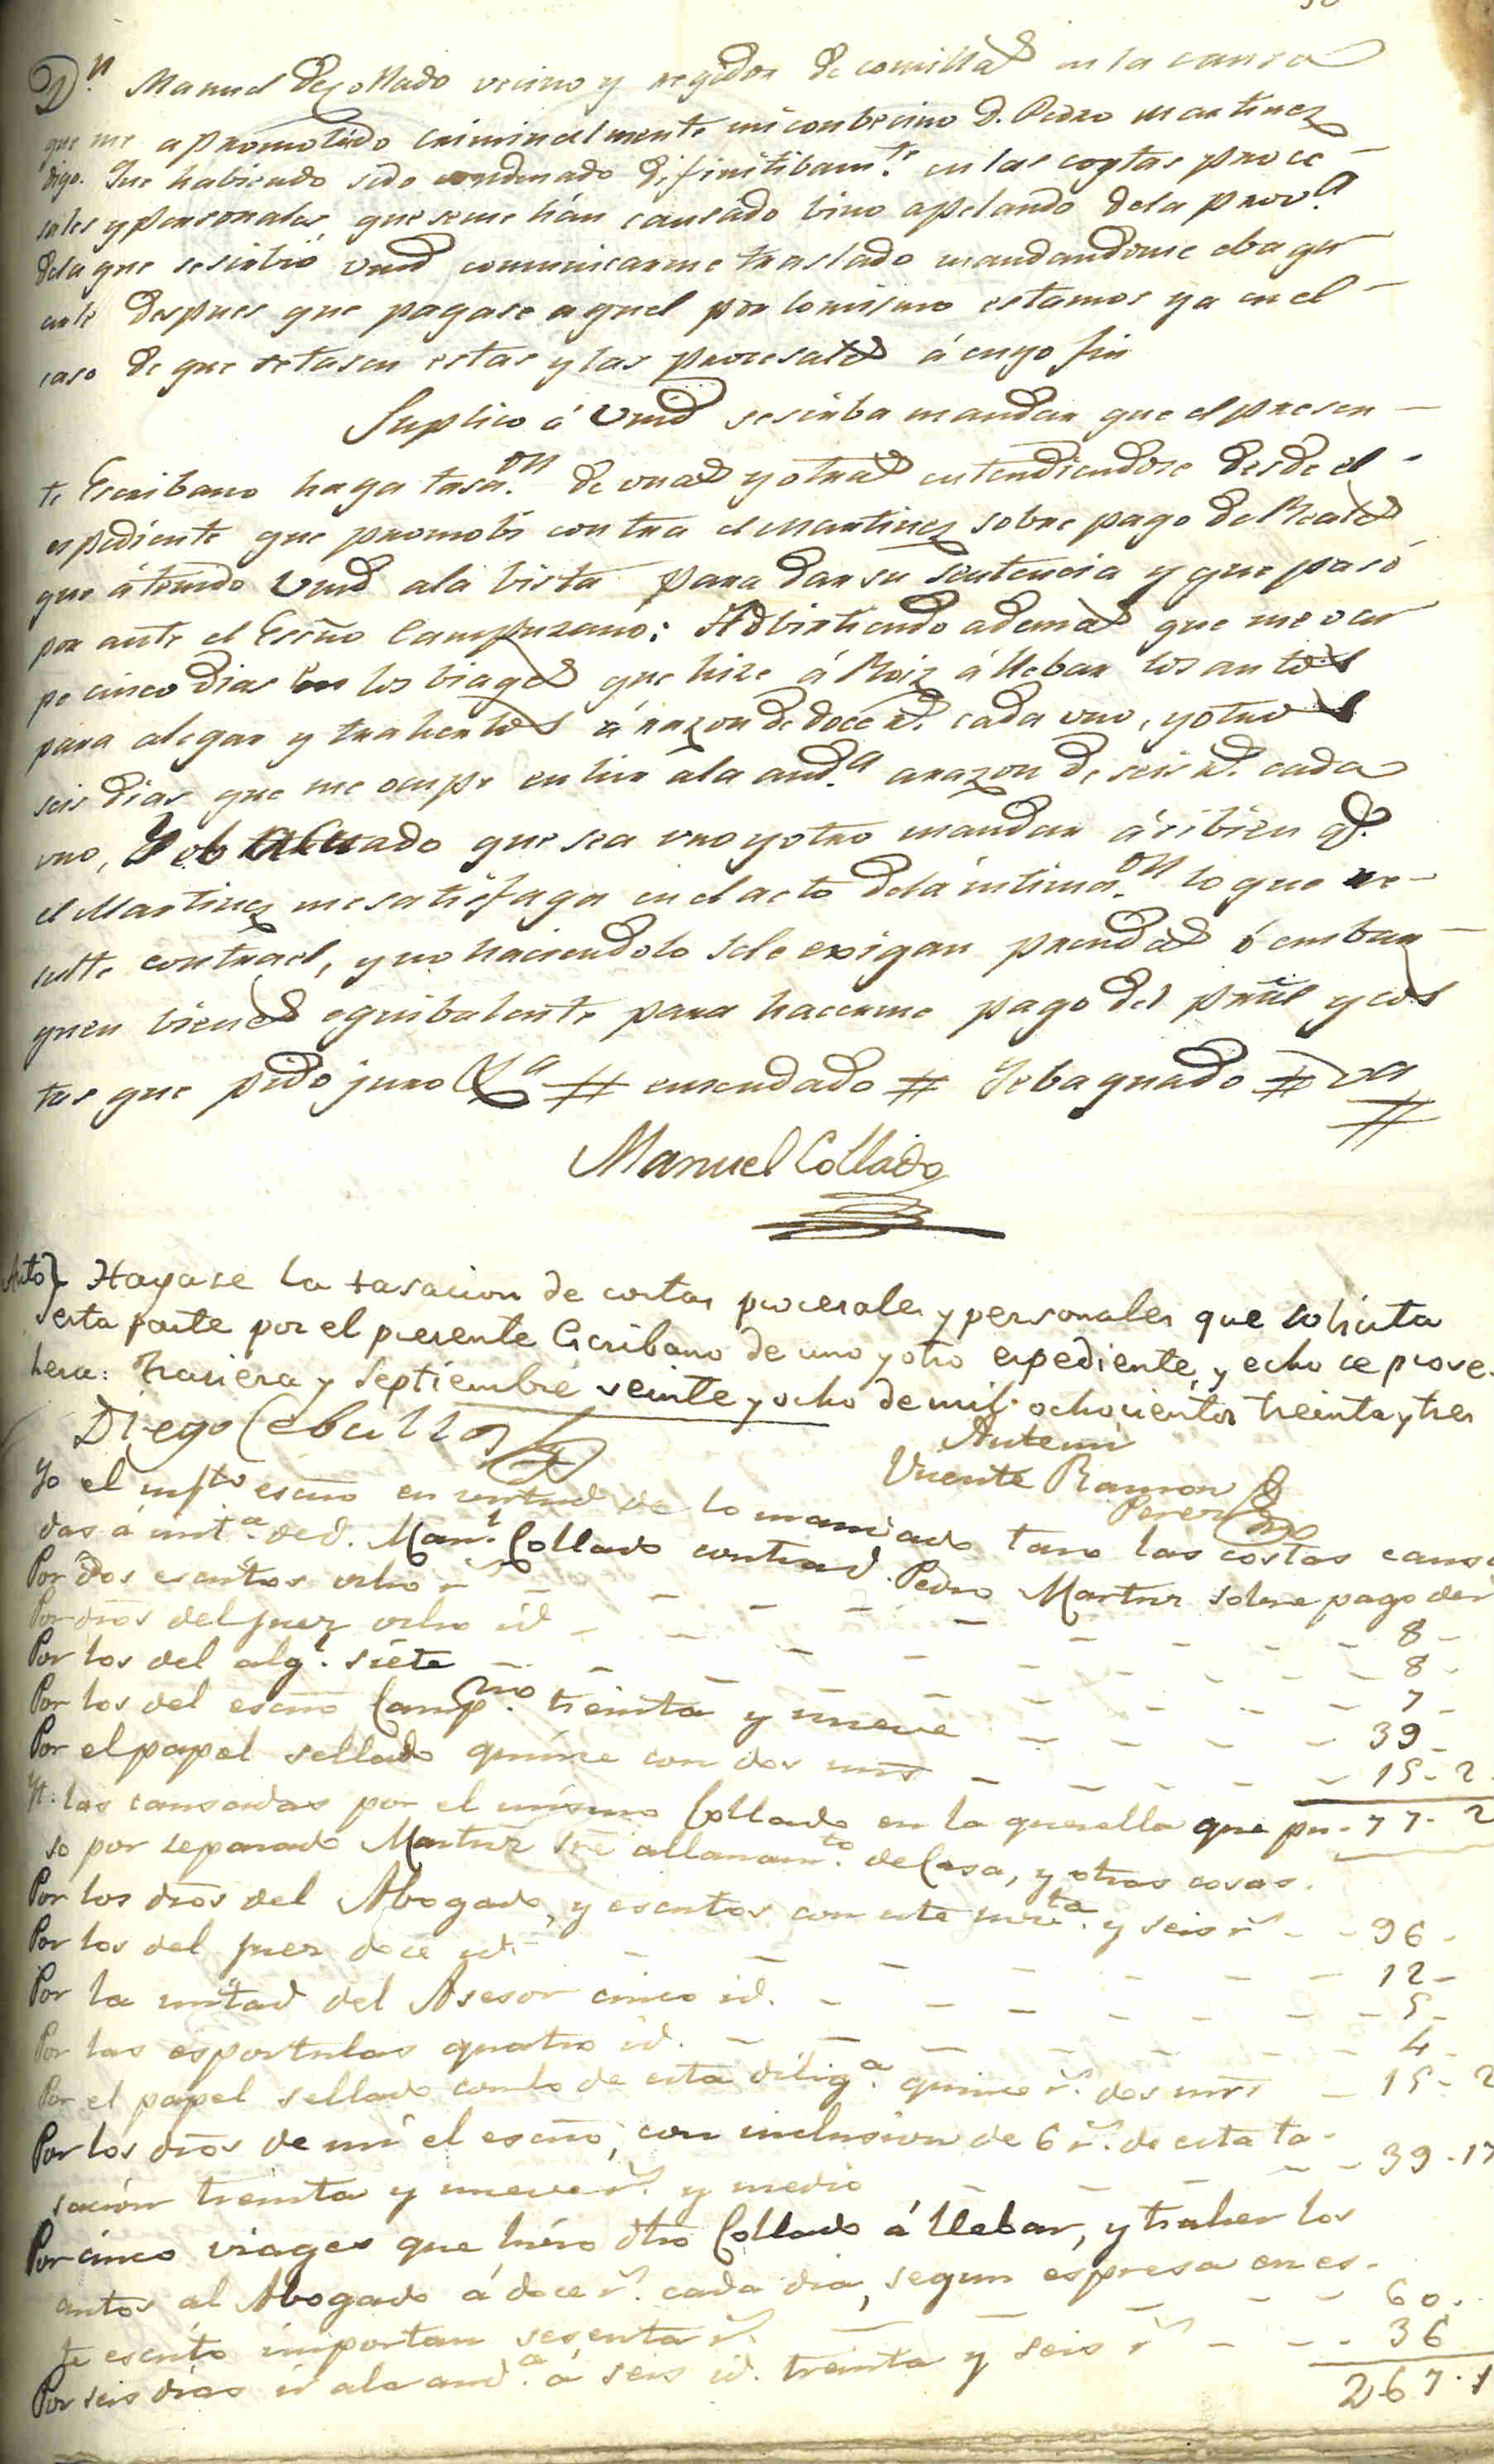 Dn. Manuel de Collado vecino y regidor de comillas en la causa
que me a promobido criminalmente mi conbecino D. Pedro Martinez
digo. Que habiendo sido condenado difinitibamte. en las costas proce
sales y personales, que se me hán causádo bino apelando dela prova.
dela que se sirbió Vmd comunicarme traslado mandandome
ante despues que pagase aquel por lo mismo estamos ya en el
caso de que se tasen estas y las procesales á cuyo fin
Suplico á Vmd se sirba mandar que el presen
te Escribano haga tasaon. de unas y otras entendiendose desde el
espediente que promobi contra el Martinez sobre pago de Reales
que á tenido Vmd ala bista para dar su sentencia y que pasó
por ante el Esno Campuzano: Adbirtiendo ademas que me ocu
pe cinco dias en los biages que hize á Roiz á llebar los autos
para alegar y traherlos á razon de doce rs. cada uno, y otros
seis dias que me ocupe en hir ala auda. arazon de seis rs. cada
uno, Y que sea uno y otro mandar ási bien qe.
el Martinez me satisfaga en el acto dela intimaon. lo que re-
sulte contrael, y no haciendolo se le exigan prendas ó embar
guen bienes equibalente para hacerme pago del pral y cos
tas que pido juro &a # enmendado # # va
#
Manuel Collado
Auto} Hagase la tasacion de costas procesales y personales que solicita
esta parte por el presente Escribano de uno y otro espediente, y echo se prove-
hera: Trasiera y Septiembre veinte y ocho de mil ochocientos treinta y tres
Diego Ceballos
Antemi
Vicente Ramon
Perez
Yo el infto esno en virtud de lo mandado taso las costas causa
das á insta. de d. Manl. Collado contra d. Pedro Martnz sobre pago de rs
Por dos escritos ocho rs - - - 8 -
Por dros del juez ocho id - - - 8 -
Por los del algl. siete - - - 7 -
Por los del esno Campno. treinta y nueve - - - 39 -
Por el papel sellado quince con dos mrs - - - 15 - 2
Yt. las causadas por el mismo Collado en la querella que pu- 77 - 2
so por separado Martnz sre allanamto. de Casa, y otras cosas.
Por los dros del Abogado, y escritos con este novta. y seis rs - - 96 -
Por los del juez doce id - - - 12 -
Por la mitad del Asesor cinco id. - - - 5 -
Por las esportulas quatro id. - - - 4 -
Por el papel sellado con lo de esta diliga. quince rs. dos mrs - 15 - 2
Por los dros de mi el esno, con inclusion de 6 rs. de esta ta-
sación treinta y nueve rs. y medio - - - 39 - 17
Por cinco viages que hizo dho Collado á llebar, y traher los
autos al Abogado á doce rs. cada dia, segun espresa en es-
te escrito importan sesenta rs. - - - 60 -
Por seis dias ir ala auda. á seis id. treinta y seis rs - - - 36
267 -